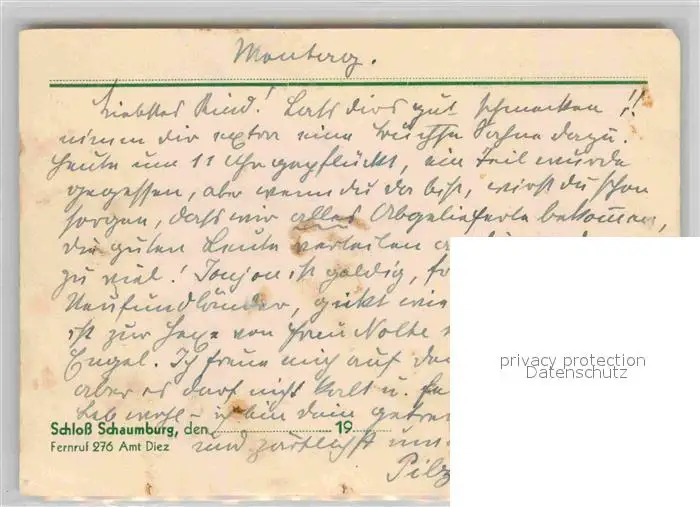 Montag.
Liebstes Kind! Lass dirs gut schmecken!!
nimm dir extra eine Büchse Sahne dazu.
Heute um 11 Uhr gepflückt, ein Teil wurde
gegessen, aber wenn du da bist, wirst du schon
sorgen, dass wir alles Abgelieferte bekommen,
die guten Leute verteilen
zu viel! Joujou ist goldig,
Neufundländer, guckt wie
ist zur Hexe von Frau Nolte
Engel. Ich freue mich auf
aber es darf nicht kalt u.
Leb wohl – ich bin dein
Schloß Schaumburg, den 19
Fernruf 276 Amt Diez
und zärtlichst
Pilz
privacy protection
Datenschutz